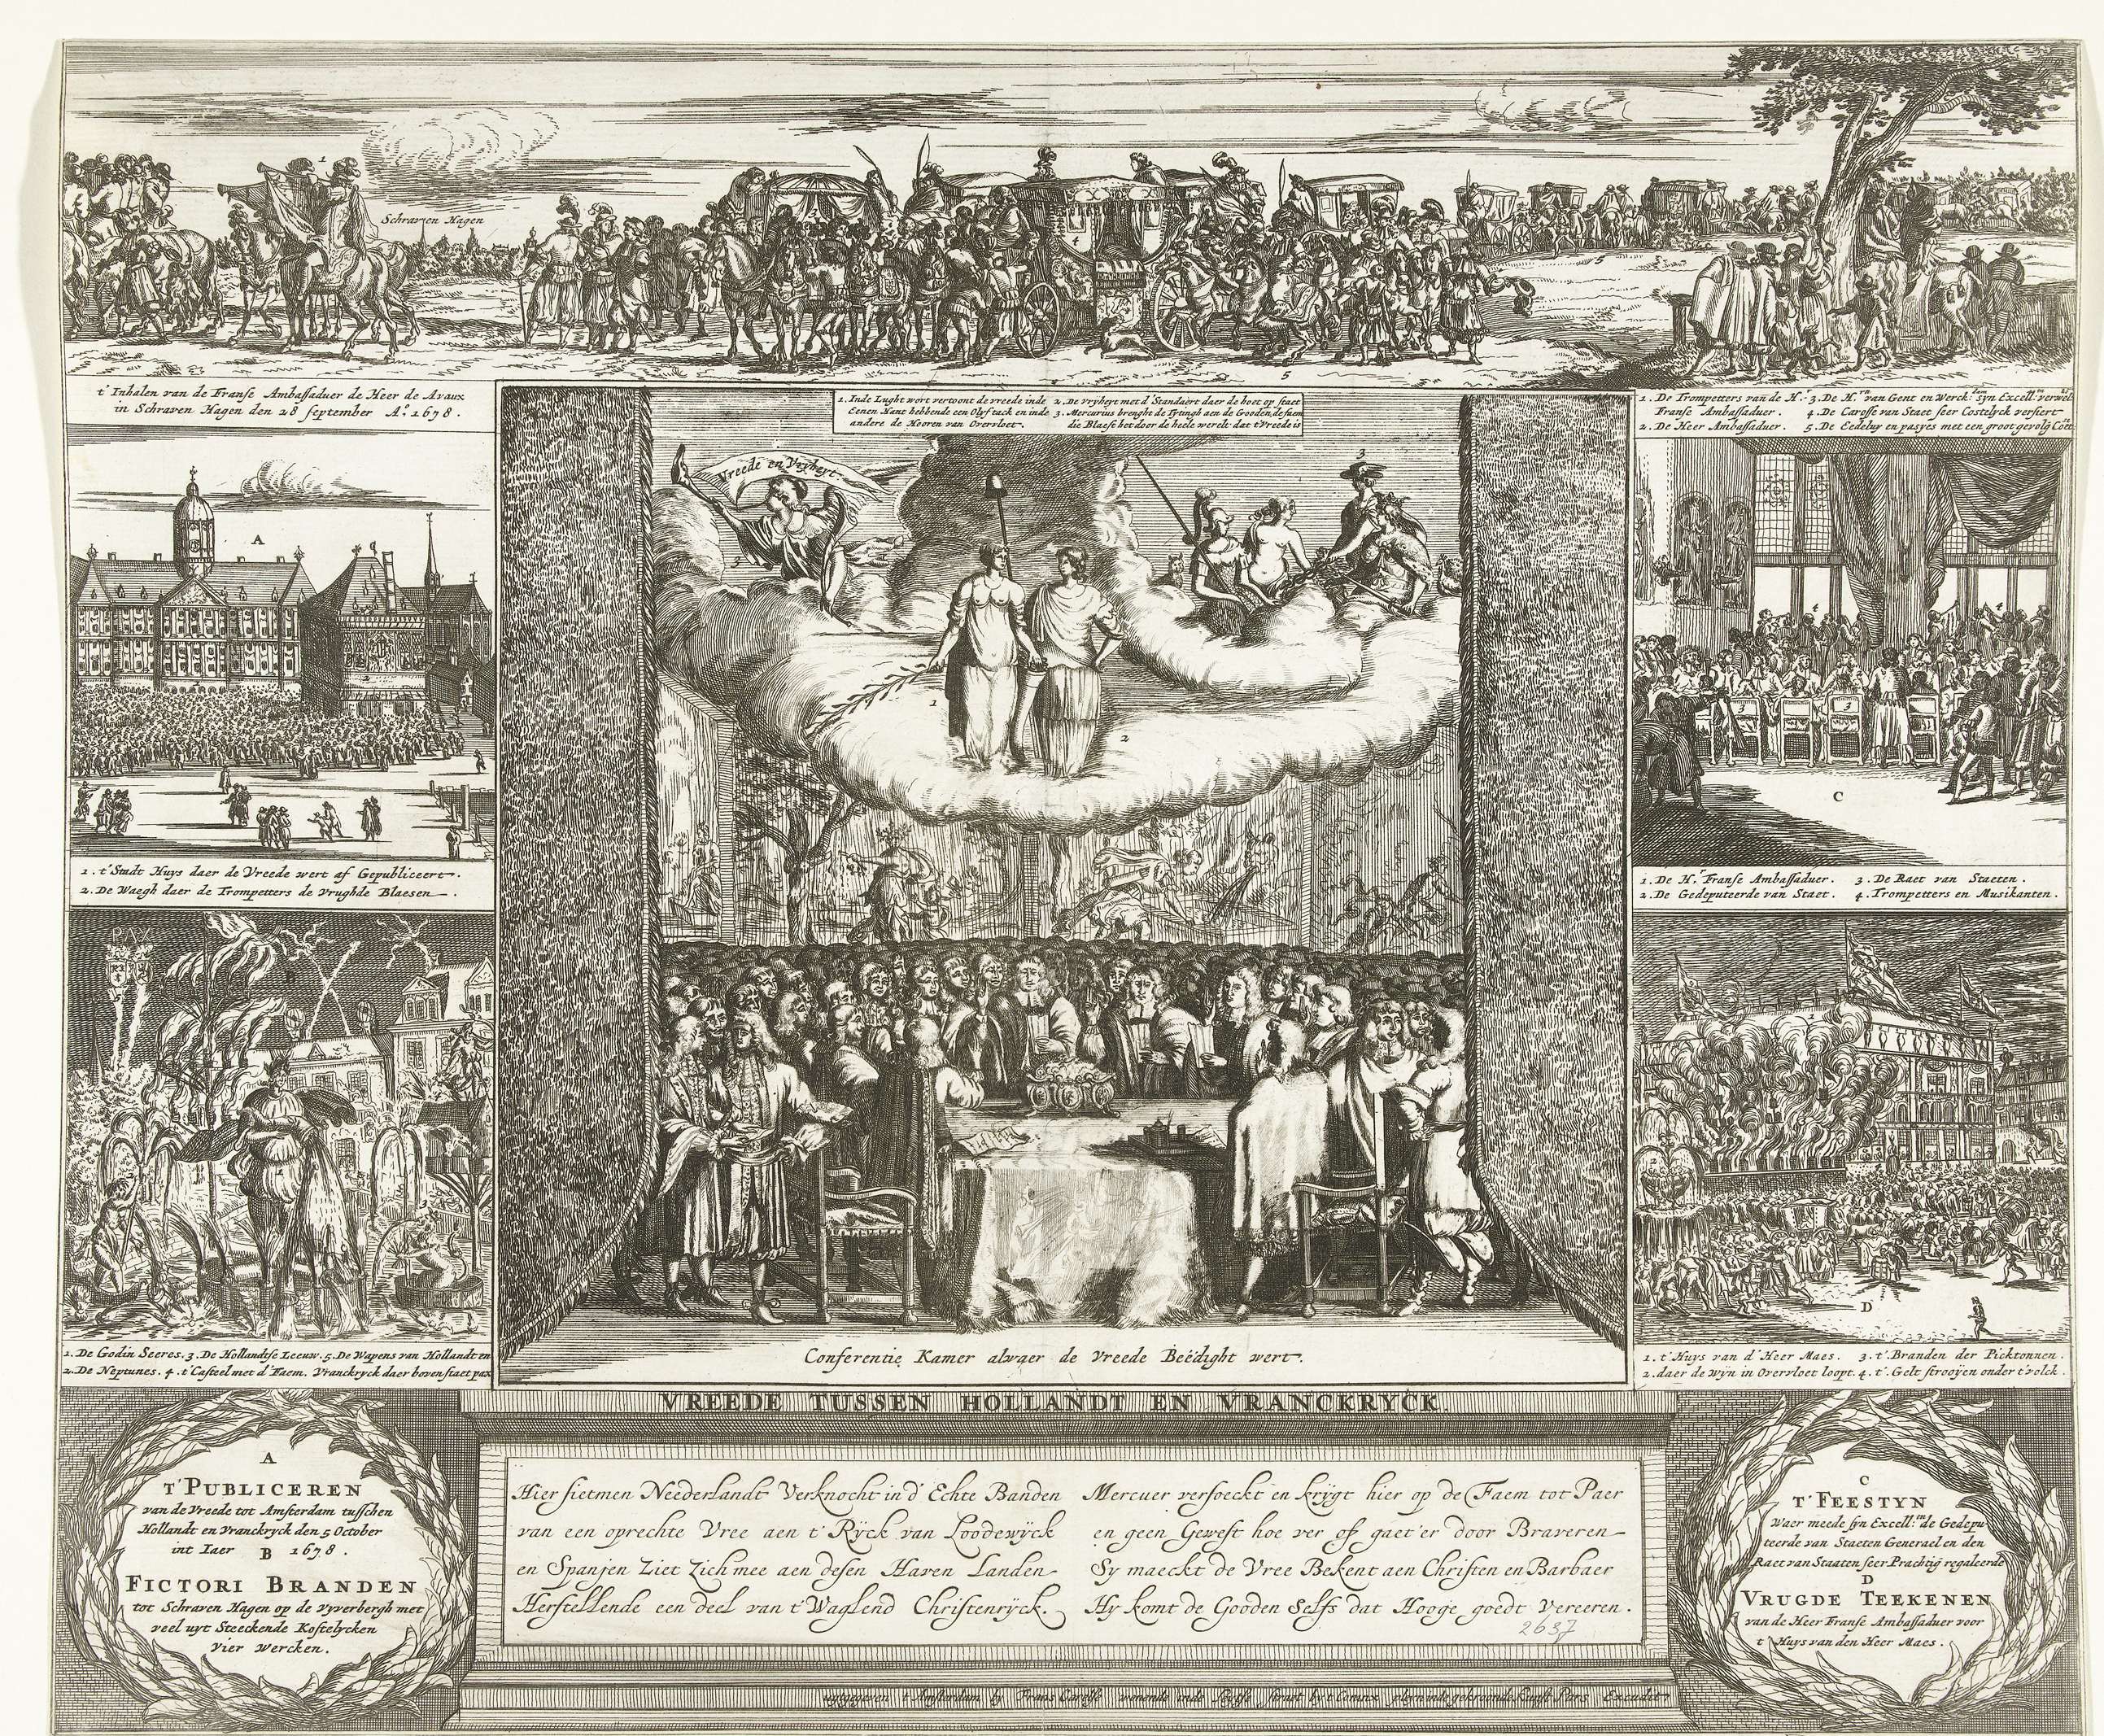 1
Schraven Hagen
4
5
5
t'Inhalen van de Franse Ambassaduer de Heer de Avaux
in Schraven Hagen den 28 september Aº. 1678.
1. Inde Lught wort vertoont de vreede in de
Eenen Hant hebbende een Olyftack en inde
andere de Hooren van Overvloet.
2. De vryheyt met d'Standaert daer de hoet op staet
3. Mercurius brenght de Tyting aen de Gooden, de faem
die Blaest het door de heele werelt dat t'Vreede is
1. De Trompetters van de H.
Franse Ambassaduer.
2. De Heer Ambassaduer.
3. De H. van Gent en Werck: syn Excell:
4. De Carosse van Staet seer Costelyck versiert
5. De Eedeluy en pasyes met een groot gevolg
Vreede en Vryheyt
3
3
1
2
A
2
4
4
3
3
C
1. t'Stadt Huys daer de Vreede wert af Gepubliceert.
2. De Waegh daer de Trompetters de Vrughde Blaesen.
1. De H.r Franse Ambassaduer.
2. De Gedeputeerde van Staet.
3. De Raet van Staeten.
4. Trompetters en Musikanten.
PAX
D
1. De Godin Seeres. 3. De Hollandtse Leeuw. 5. De Wapens van Hollandt en
2. De Neptunes. 4. t'Casteel met d'Faem. Vranckryck daer boven staet pax
Conferentie Kamer alwaer de Vreede Beëdight wert.
1. t'Huys van d'Heer Maes.
2. daer de Wyn in Overvloet loopt.
3. t'Branden der Picktonnen.
4. t'Gelt strooyen onder t'volck.
VREEDE TUSSEN HOLLANDT EN VRANCKRYCK.
A
t'PUBLICEREN
van de Vreede tot Amsterdam tusschen
Hollandt en Vranckryck den 5 October
int Iaer 1678.
B
FICTORI BRANDEN
tot Schraven Hagen op de Vyverbergh met
veel uyt Steeckende Kostelycken
Vier Wercken.
Hier sietmen Neederlandt Verknocht in d'Echte Banden
van een oprechte Vree aen t'Ryck van Loodewyck
en Spanjen Ziet Zich mee aen desen Haven Landen
Herstellende een deel van t'Waglend Christenryck.
Mercuer versoeckt en krygt hier op de Faem tot Paer
en geen Gewest hoe ver of gaet'er door Braveren
Sy maeckt de Vree Bekent aen Christen en Barbaer
Hy komt de Gooden Selfs dat Hooge goedt Vereeren.
2637
C
T'FEESTYN
Waer meede syn Excell:tie de Gedepu
teerde van Staeten Generael en den
Raet van Staaten seer Prachtig regaleerde
D
VRUGDE TEEKENEN
van de Heer Franse Ambassaduer voor
t'Huys van den Heer Maes.
uytgegeven t'Amsterdam by Frans Carelse wonende inde